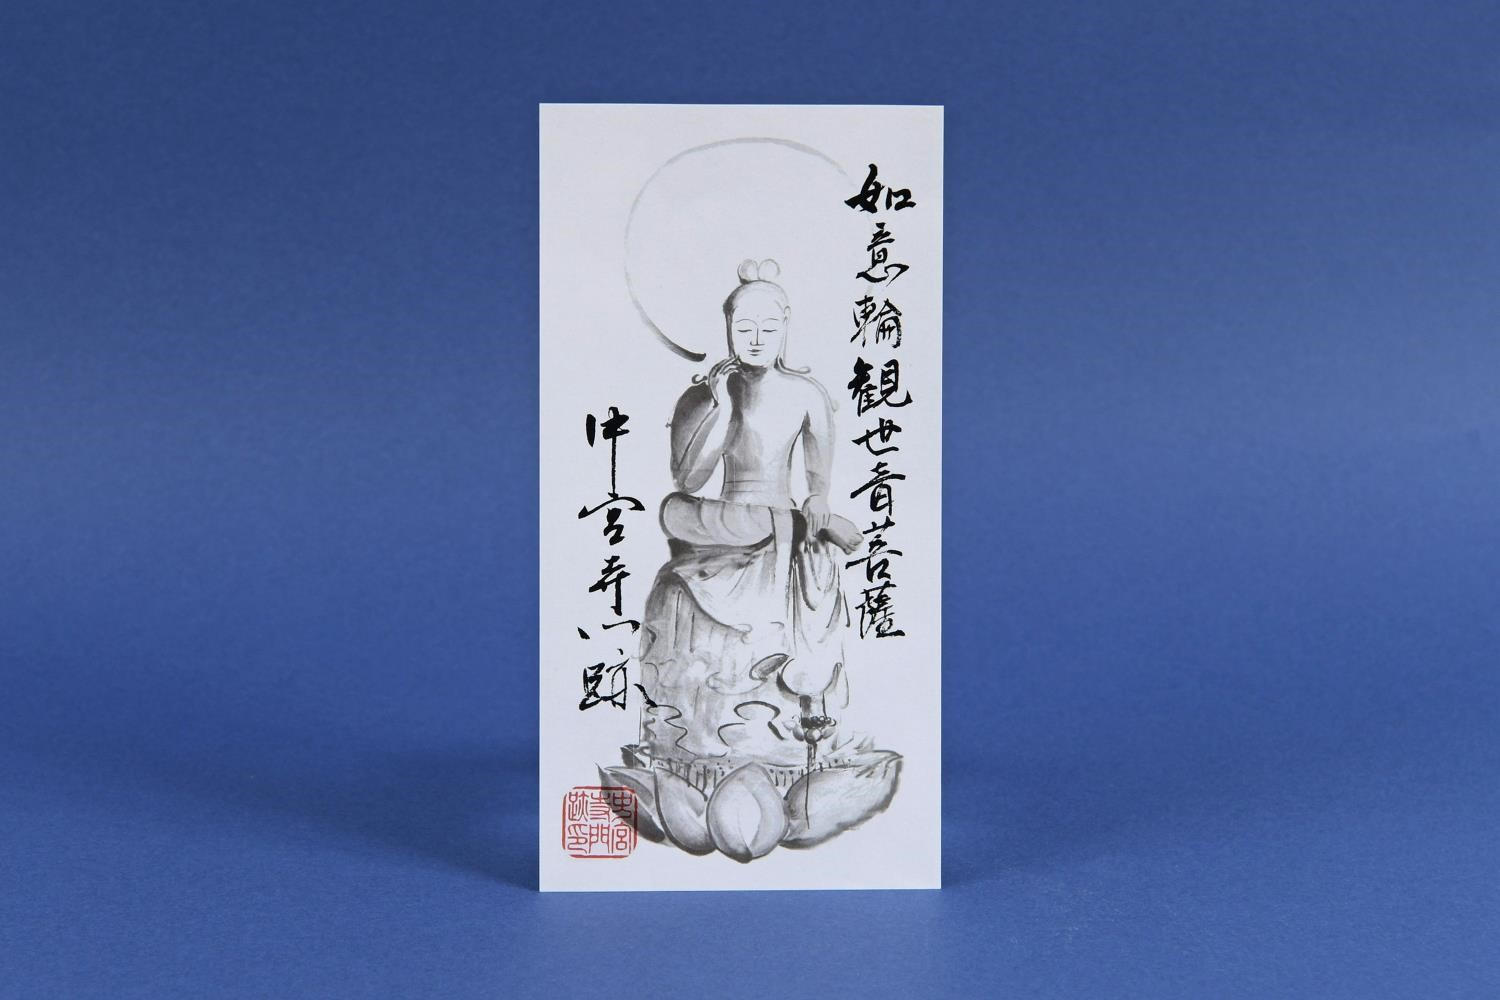 如意輪観世音菩薩
中宮寺門跡
中宮
寺門
跡印